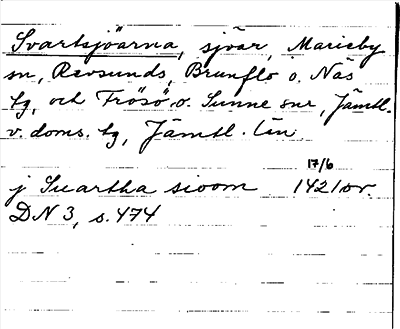 Svartsjöarna, sjöar, Marieby
sn, Revsunds, Brunflo o. Näs
tg, och Frösö o. Sunne snr, Jämtl.
v. doms. tg, Jämtl. län
17/6
j Suartha sioom 1421 or.
DN 3, s. 474